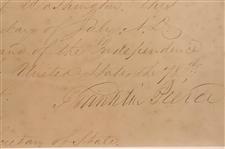 Washington, this
day of July, A.D.
and of the Independence
United States the 78th
Franklin Pierce
Secretary of State.